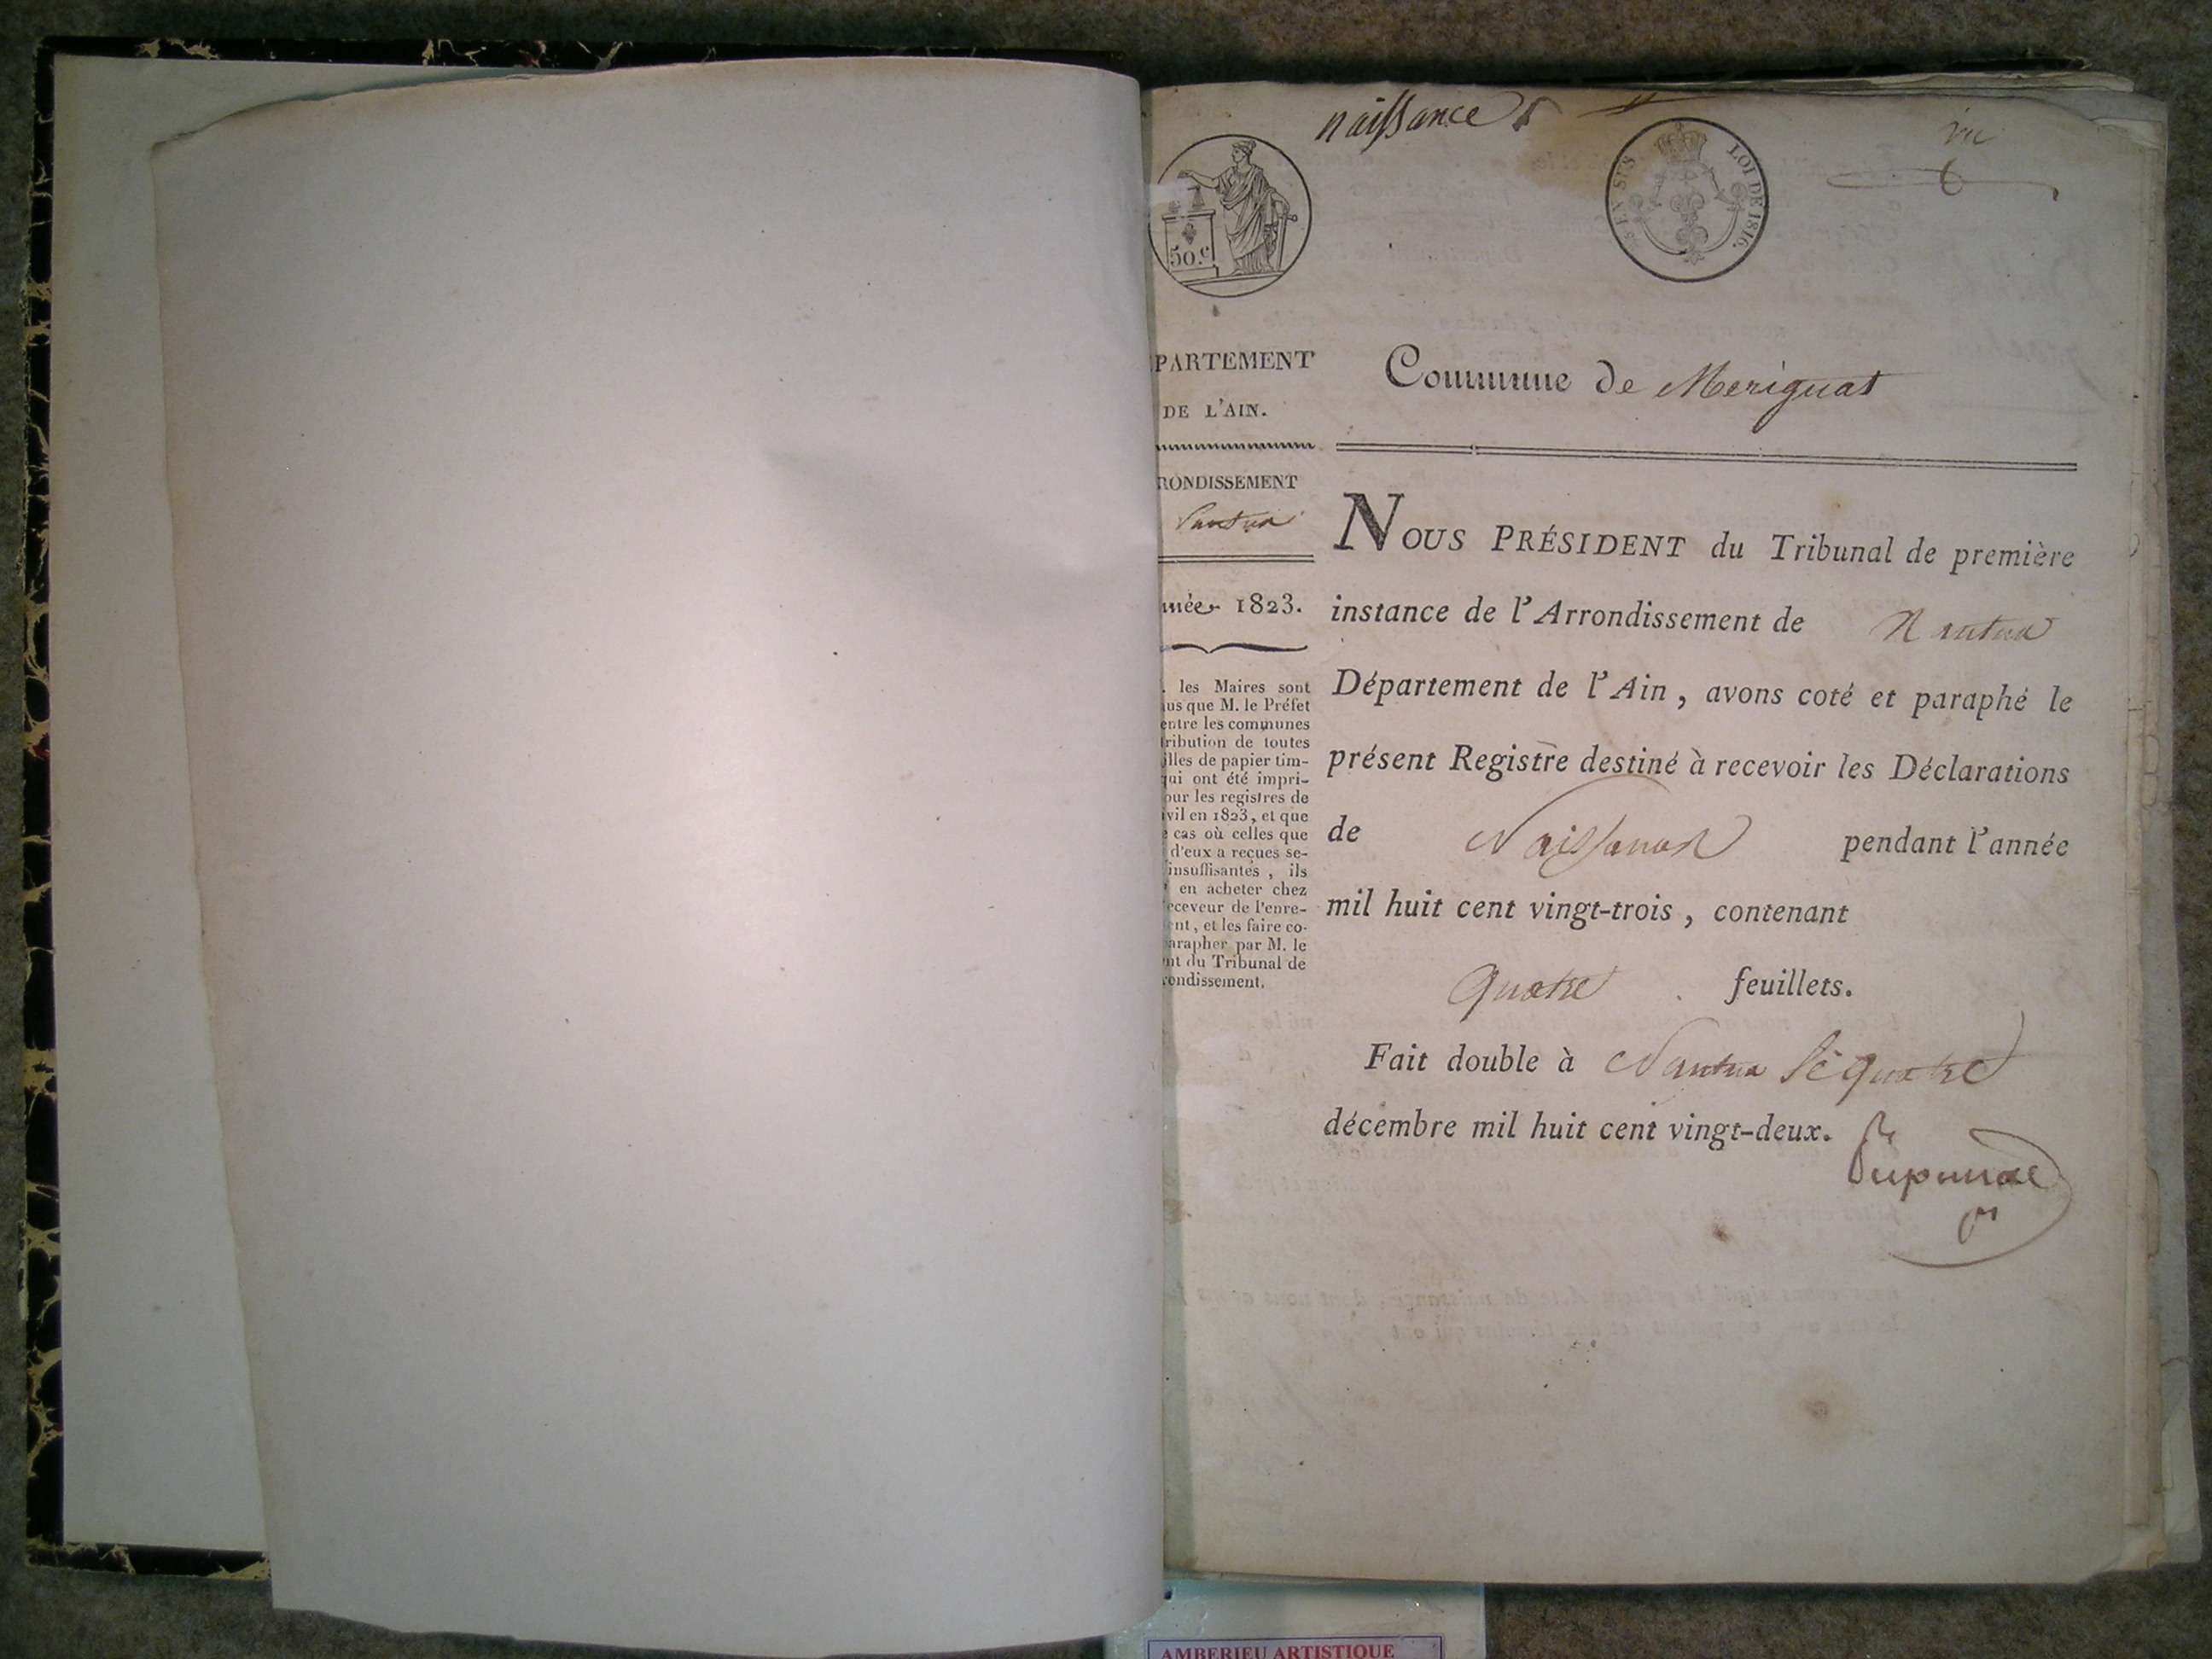 naissance
vu
50.c
EN SUS
LOI DE 1816.
PARTEMENT
DE L'AIN.
RONDISSEMENT
Nantua
née 1823.
. les Maires sont
us que M. le Préfet
entre les communes
tribution de toutes
illes de papier tim-
qui ont été impri-
our les registres de
ivil en 1823, et que
e cas où celles que
d'eux a reçues se-
insuffisantes, ils
en acheter chez
eceveur de l'enre-
ent, et les faire co-
arapher par M. le
nt du Tribunal de
rondissement.
Commune de Merignat
NOUS PRÉSIDENT du Tribunal de première
instance de l'Arrondissement de Nantua
Département de l'Ain, avons coté et paraphé le
présent Registre destiné à recevoir les Déclarations
de Naissances pendant l'année
mil huit cent vingt-trois, contenant
quatre feuillets.
Fait double à Nantua le quatre
décembre mil huit cent vingt-deux.
AMBERIEU ARTISTIQUE